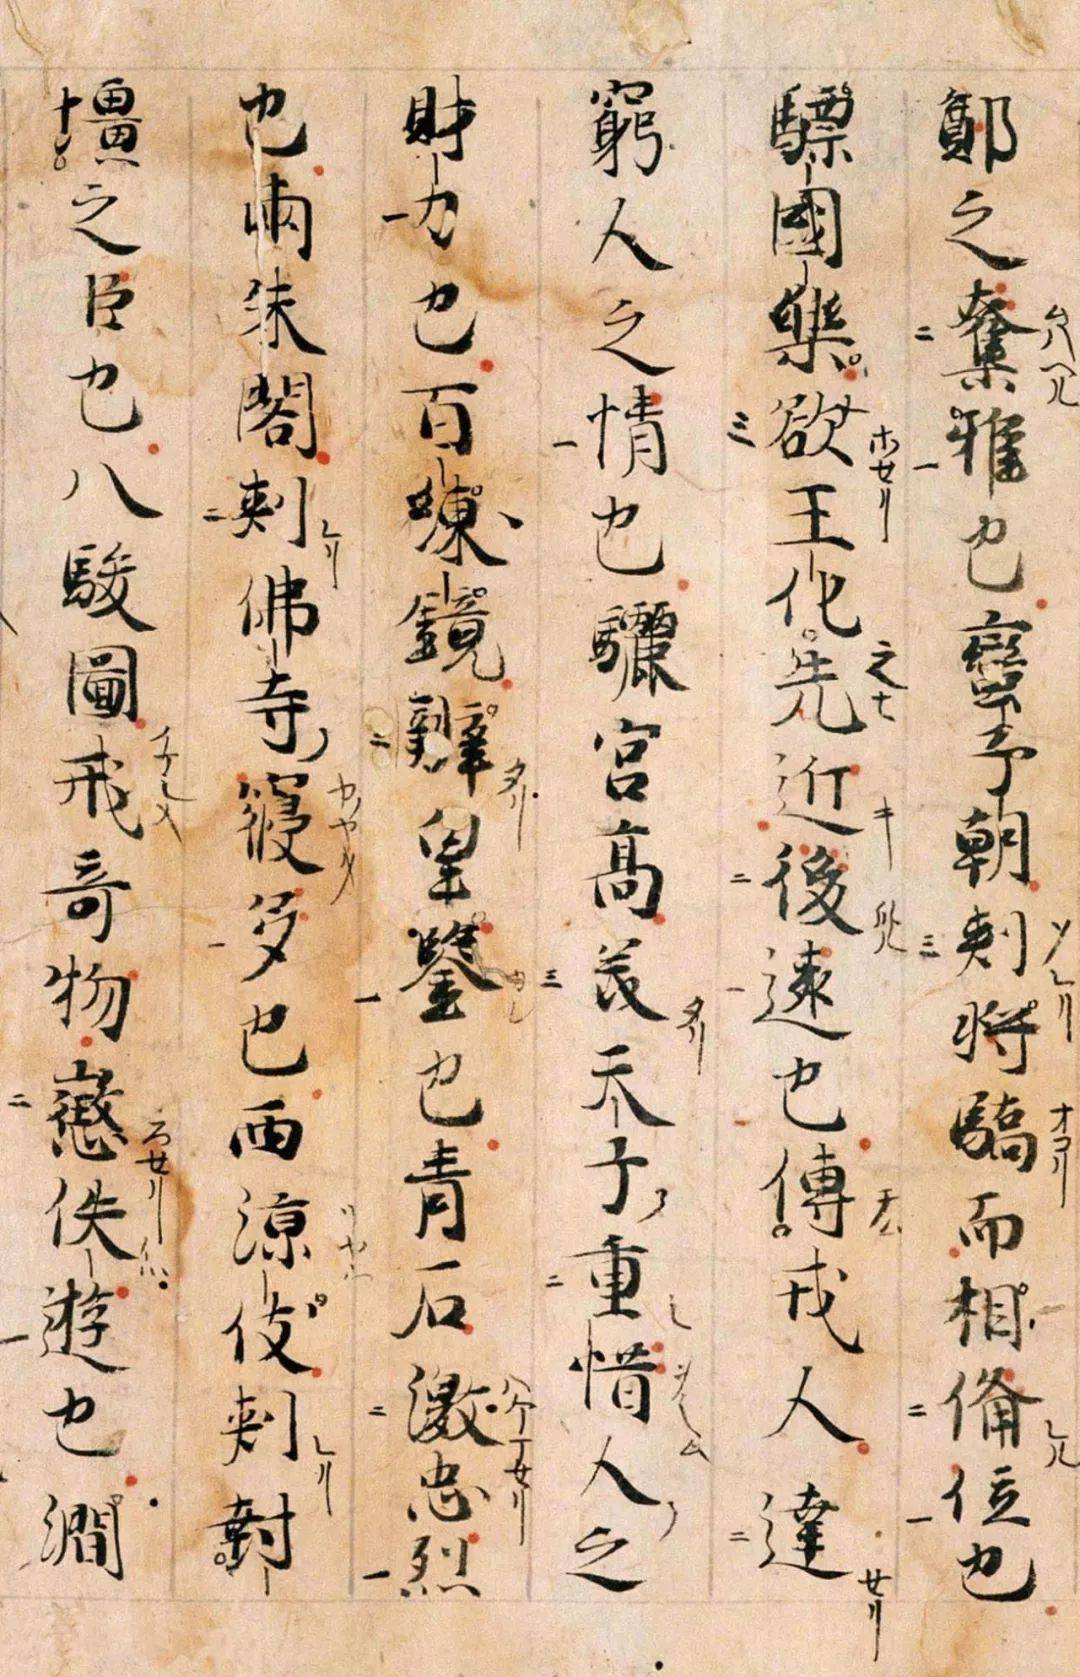 鄭之奪雅也蠻子朝刺將驕而相備位也
驃國樂欲王化先近後遠也傳戎人達
窮人之情也驪宮高美天子重惜人之
財力也百練鏡皇鑒也青石激忠烈
也兩朱閣刺佛寺寖多也西涼伎刺封
壃之臣也八駿圖戒奇物懲佚遊也澗